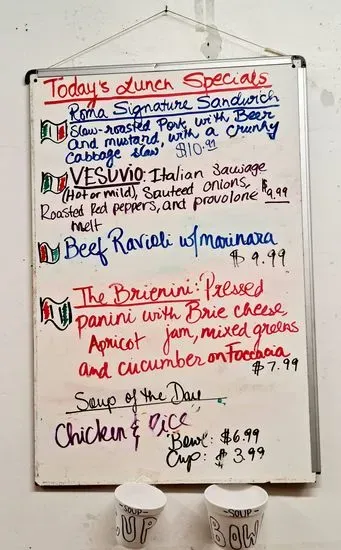 Today's Lunch Specials
Roma Signature Sandwich
Slow-roasted Pork with Beer
and mustard, with a crunchy
Cabbage slaw $10.99
VESUVIO: Italian Sausage
(Hot or mild), Sauteed onions,
Roasted Red peppers, and provolone $9.99
melt
Beef Ravioli w/marinara
$9.99
The Brienini: Pressed
panini with Brie cheese,
Apricot jam, mixed greens
and cucumber on Foccacia
$7.99
Soup of the Day
Chicken & Rice
Bowl: $6.99
Cup: $3.99
-SOUP- -SOUP-
CUP BOWL